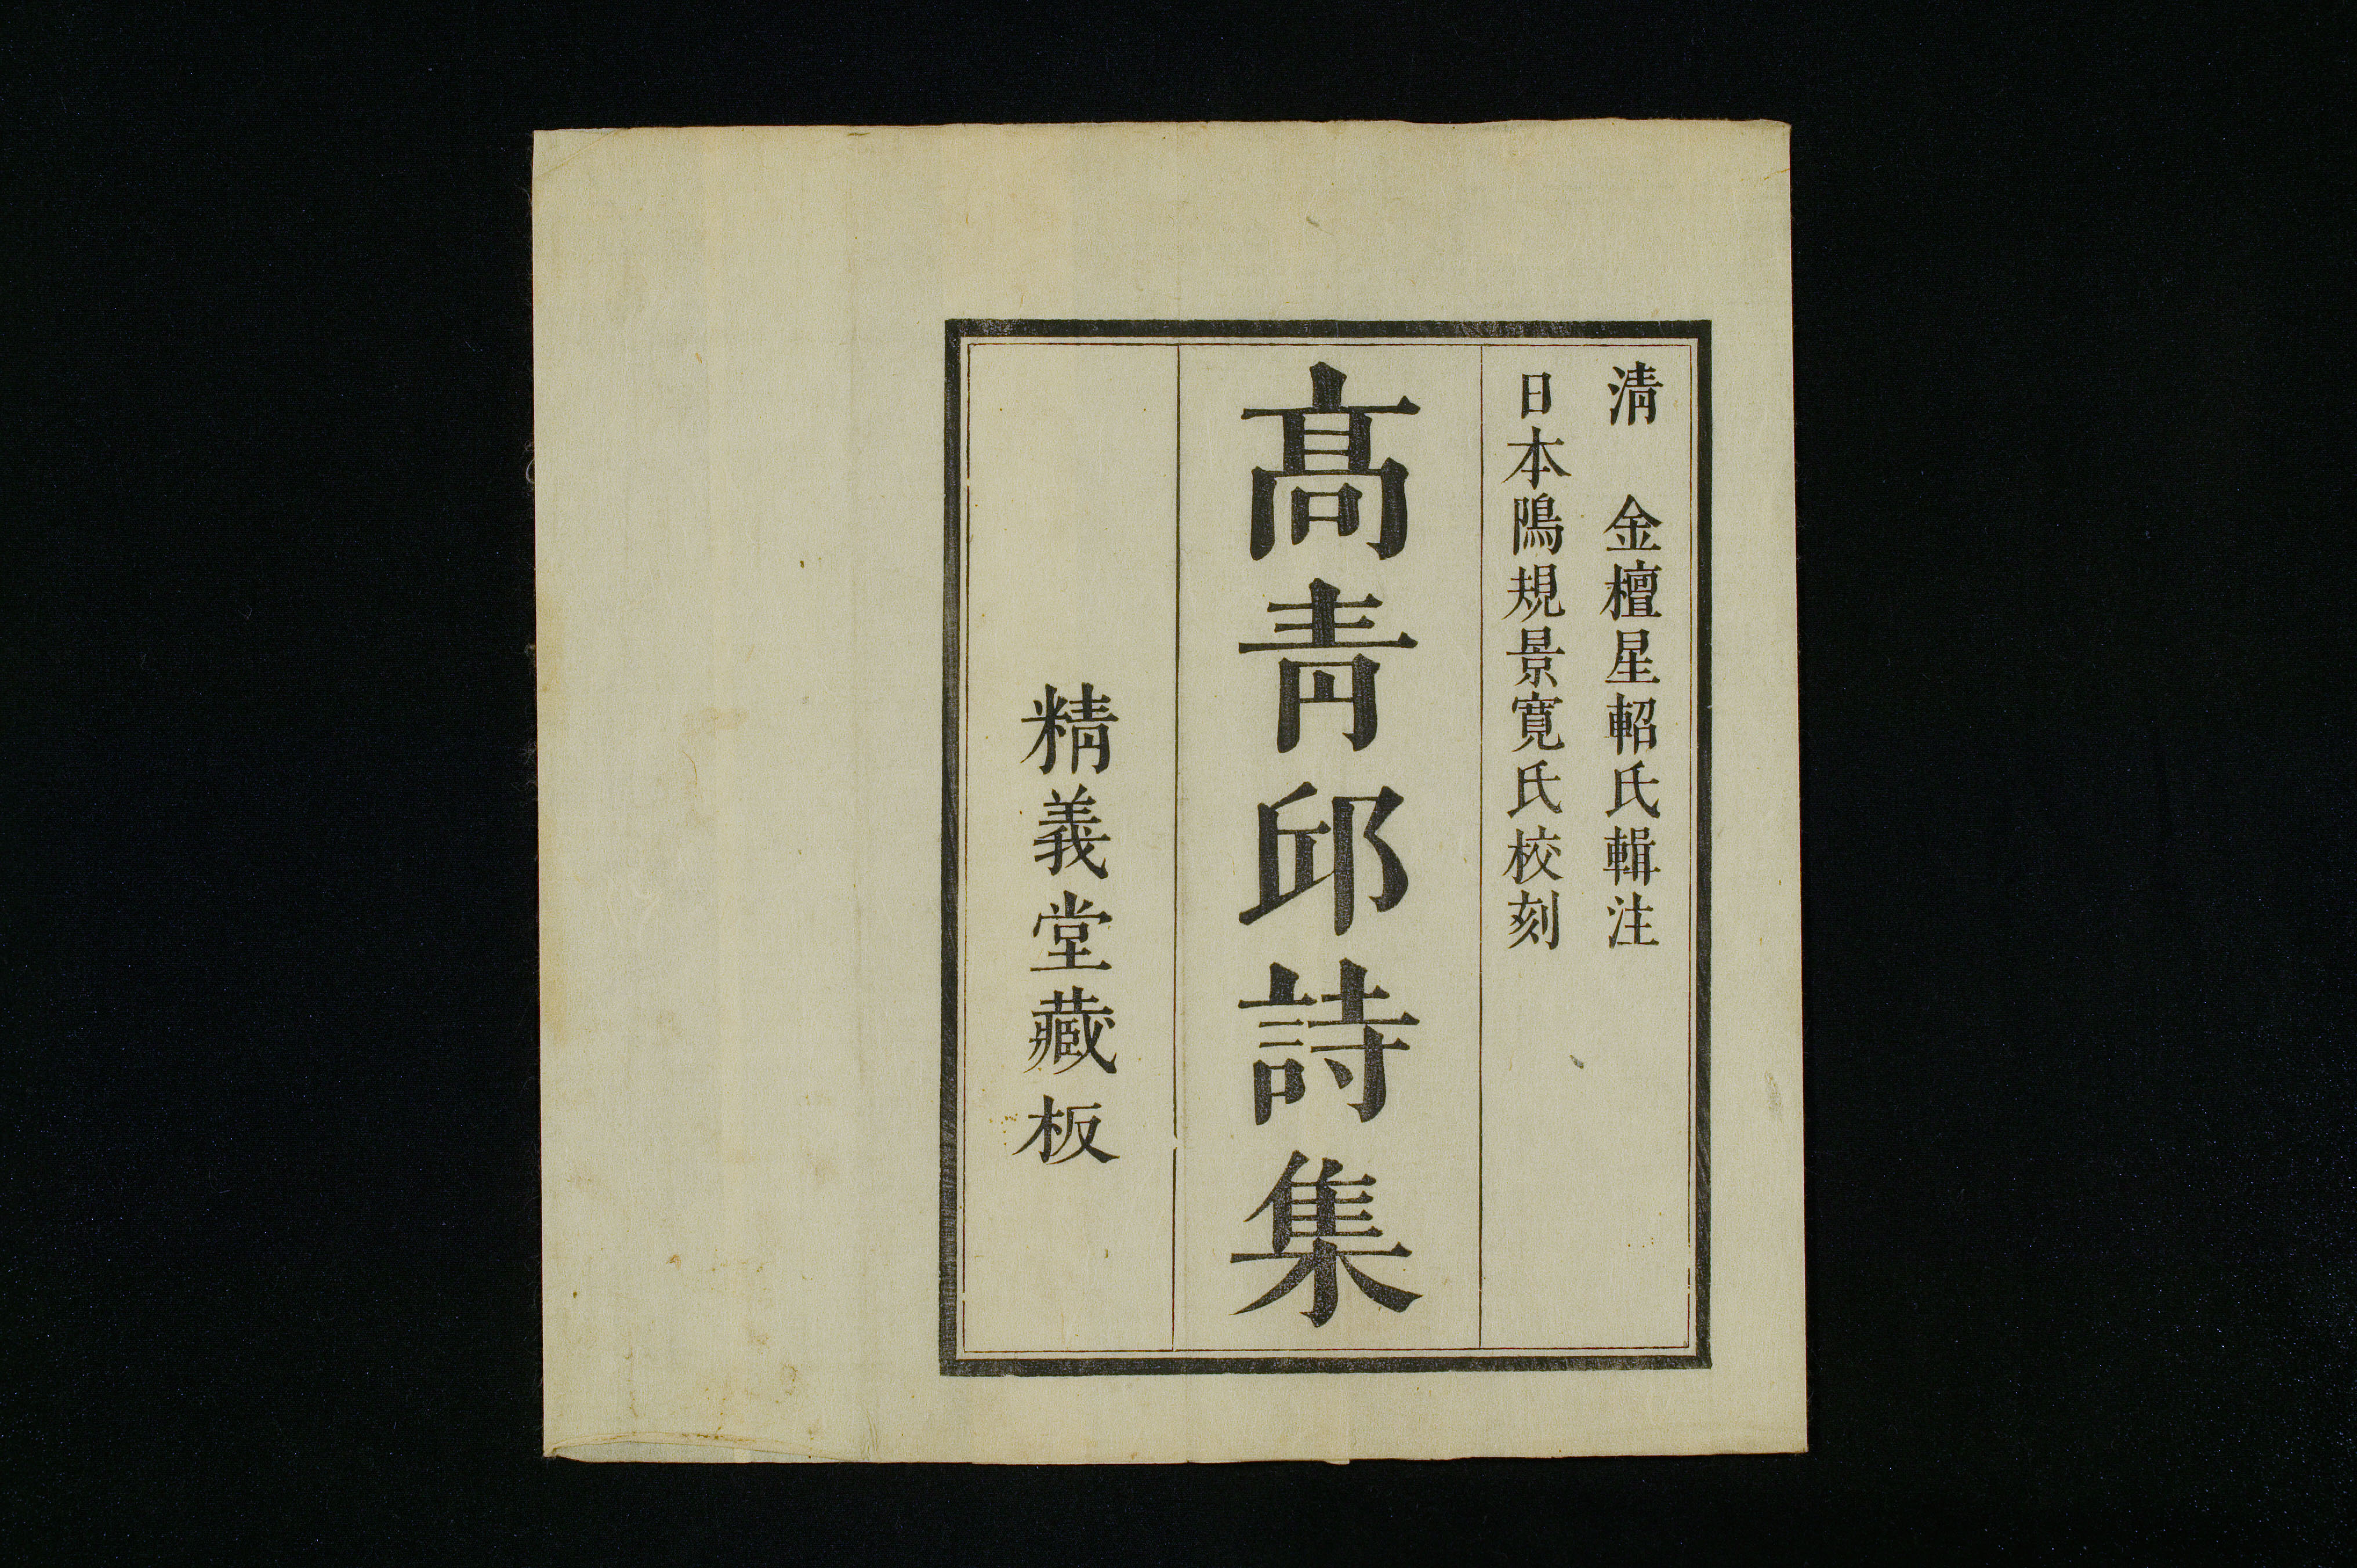 清　金檀星軺氏輯注
日本隝規景寬氏校刻
髙靑邱詩集
精義堂藏板